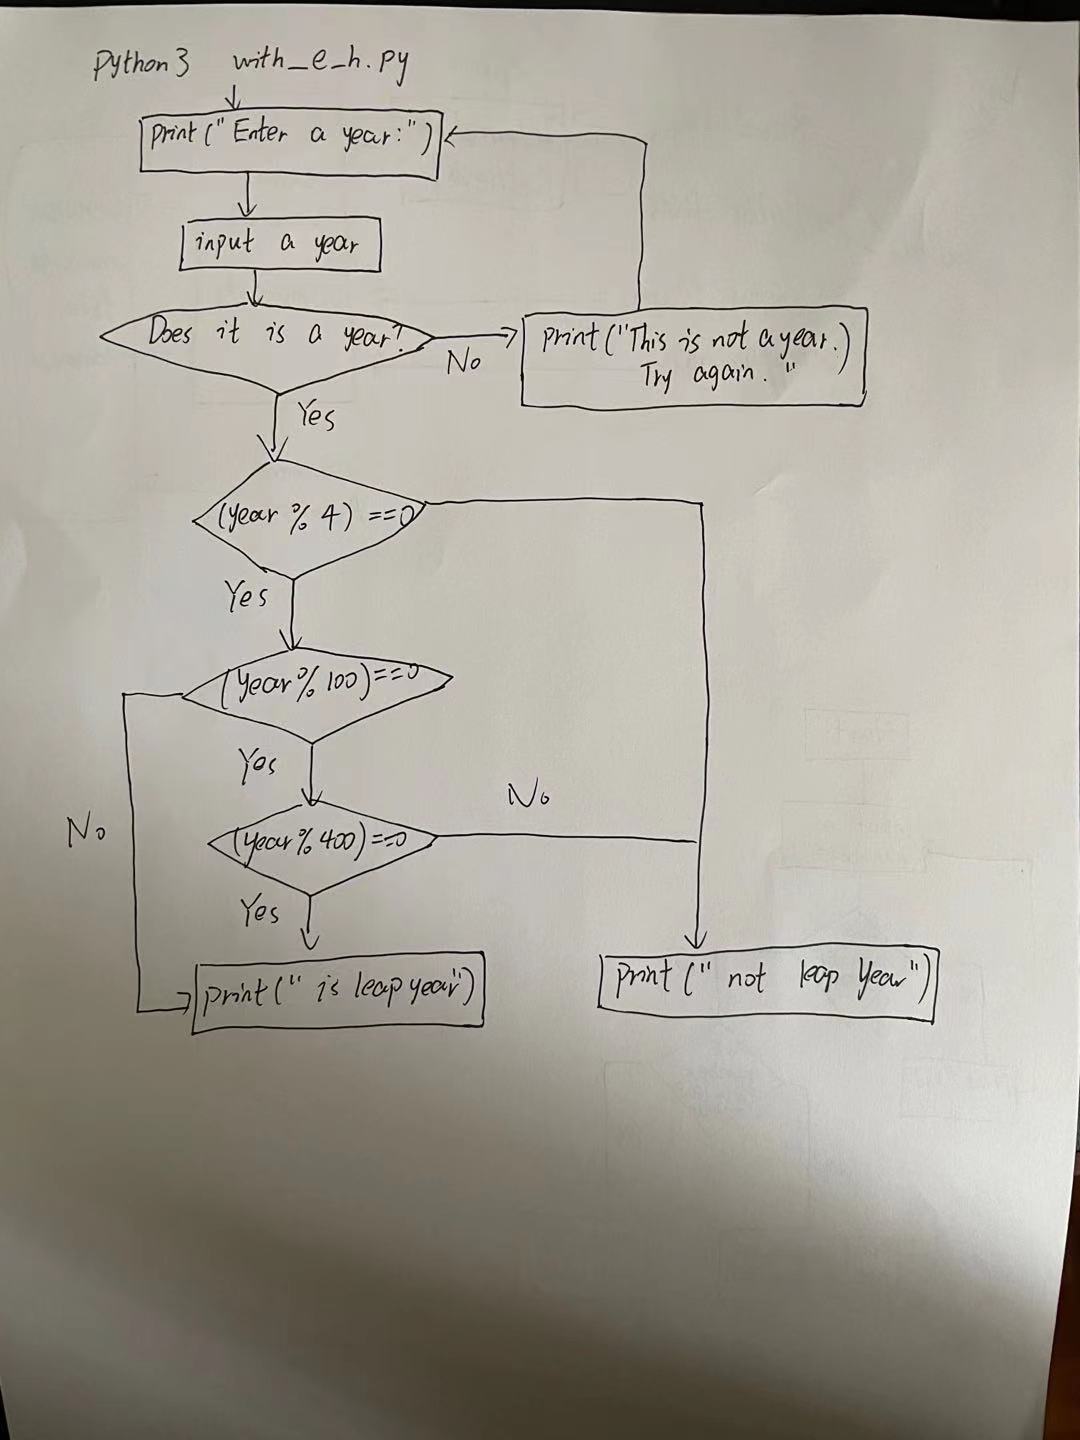 Python3 with_e_h.py
print("Enter a year:")
input a year
Does it is a year?
No
print("This is not a year.)
Try again. "
Yes
(year % 4) ==0
Yes
(year % 100)==0
Yes
No
No
(year % 400)==0
Yes
print(" is leap year")
print(" not leap year")